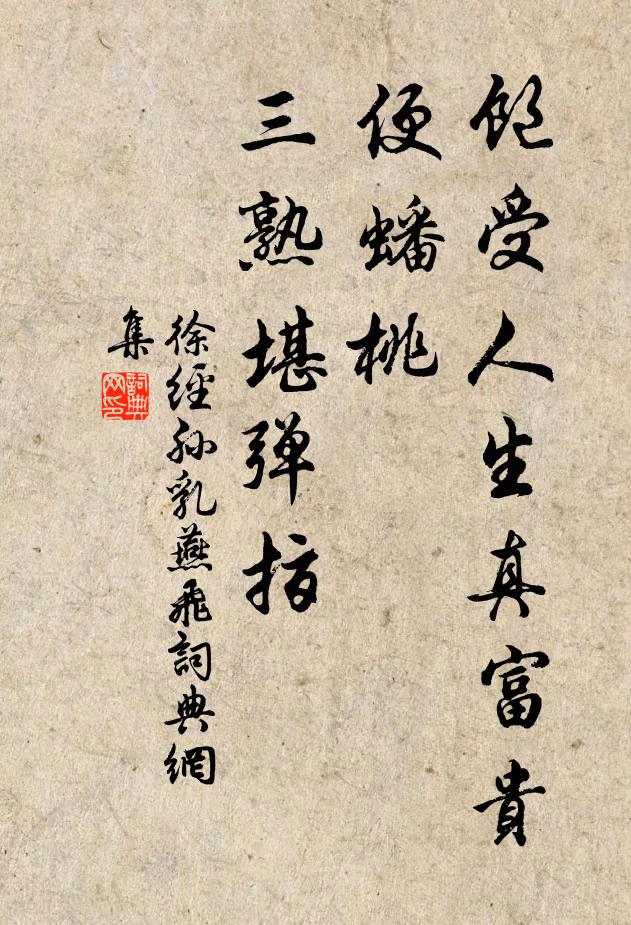 飽受人生真富貴
便蟠桃
三熟堪弹指
徐經孙乳燕飛詞典網
集
詞典
网印